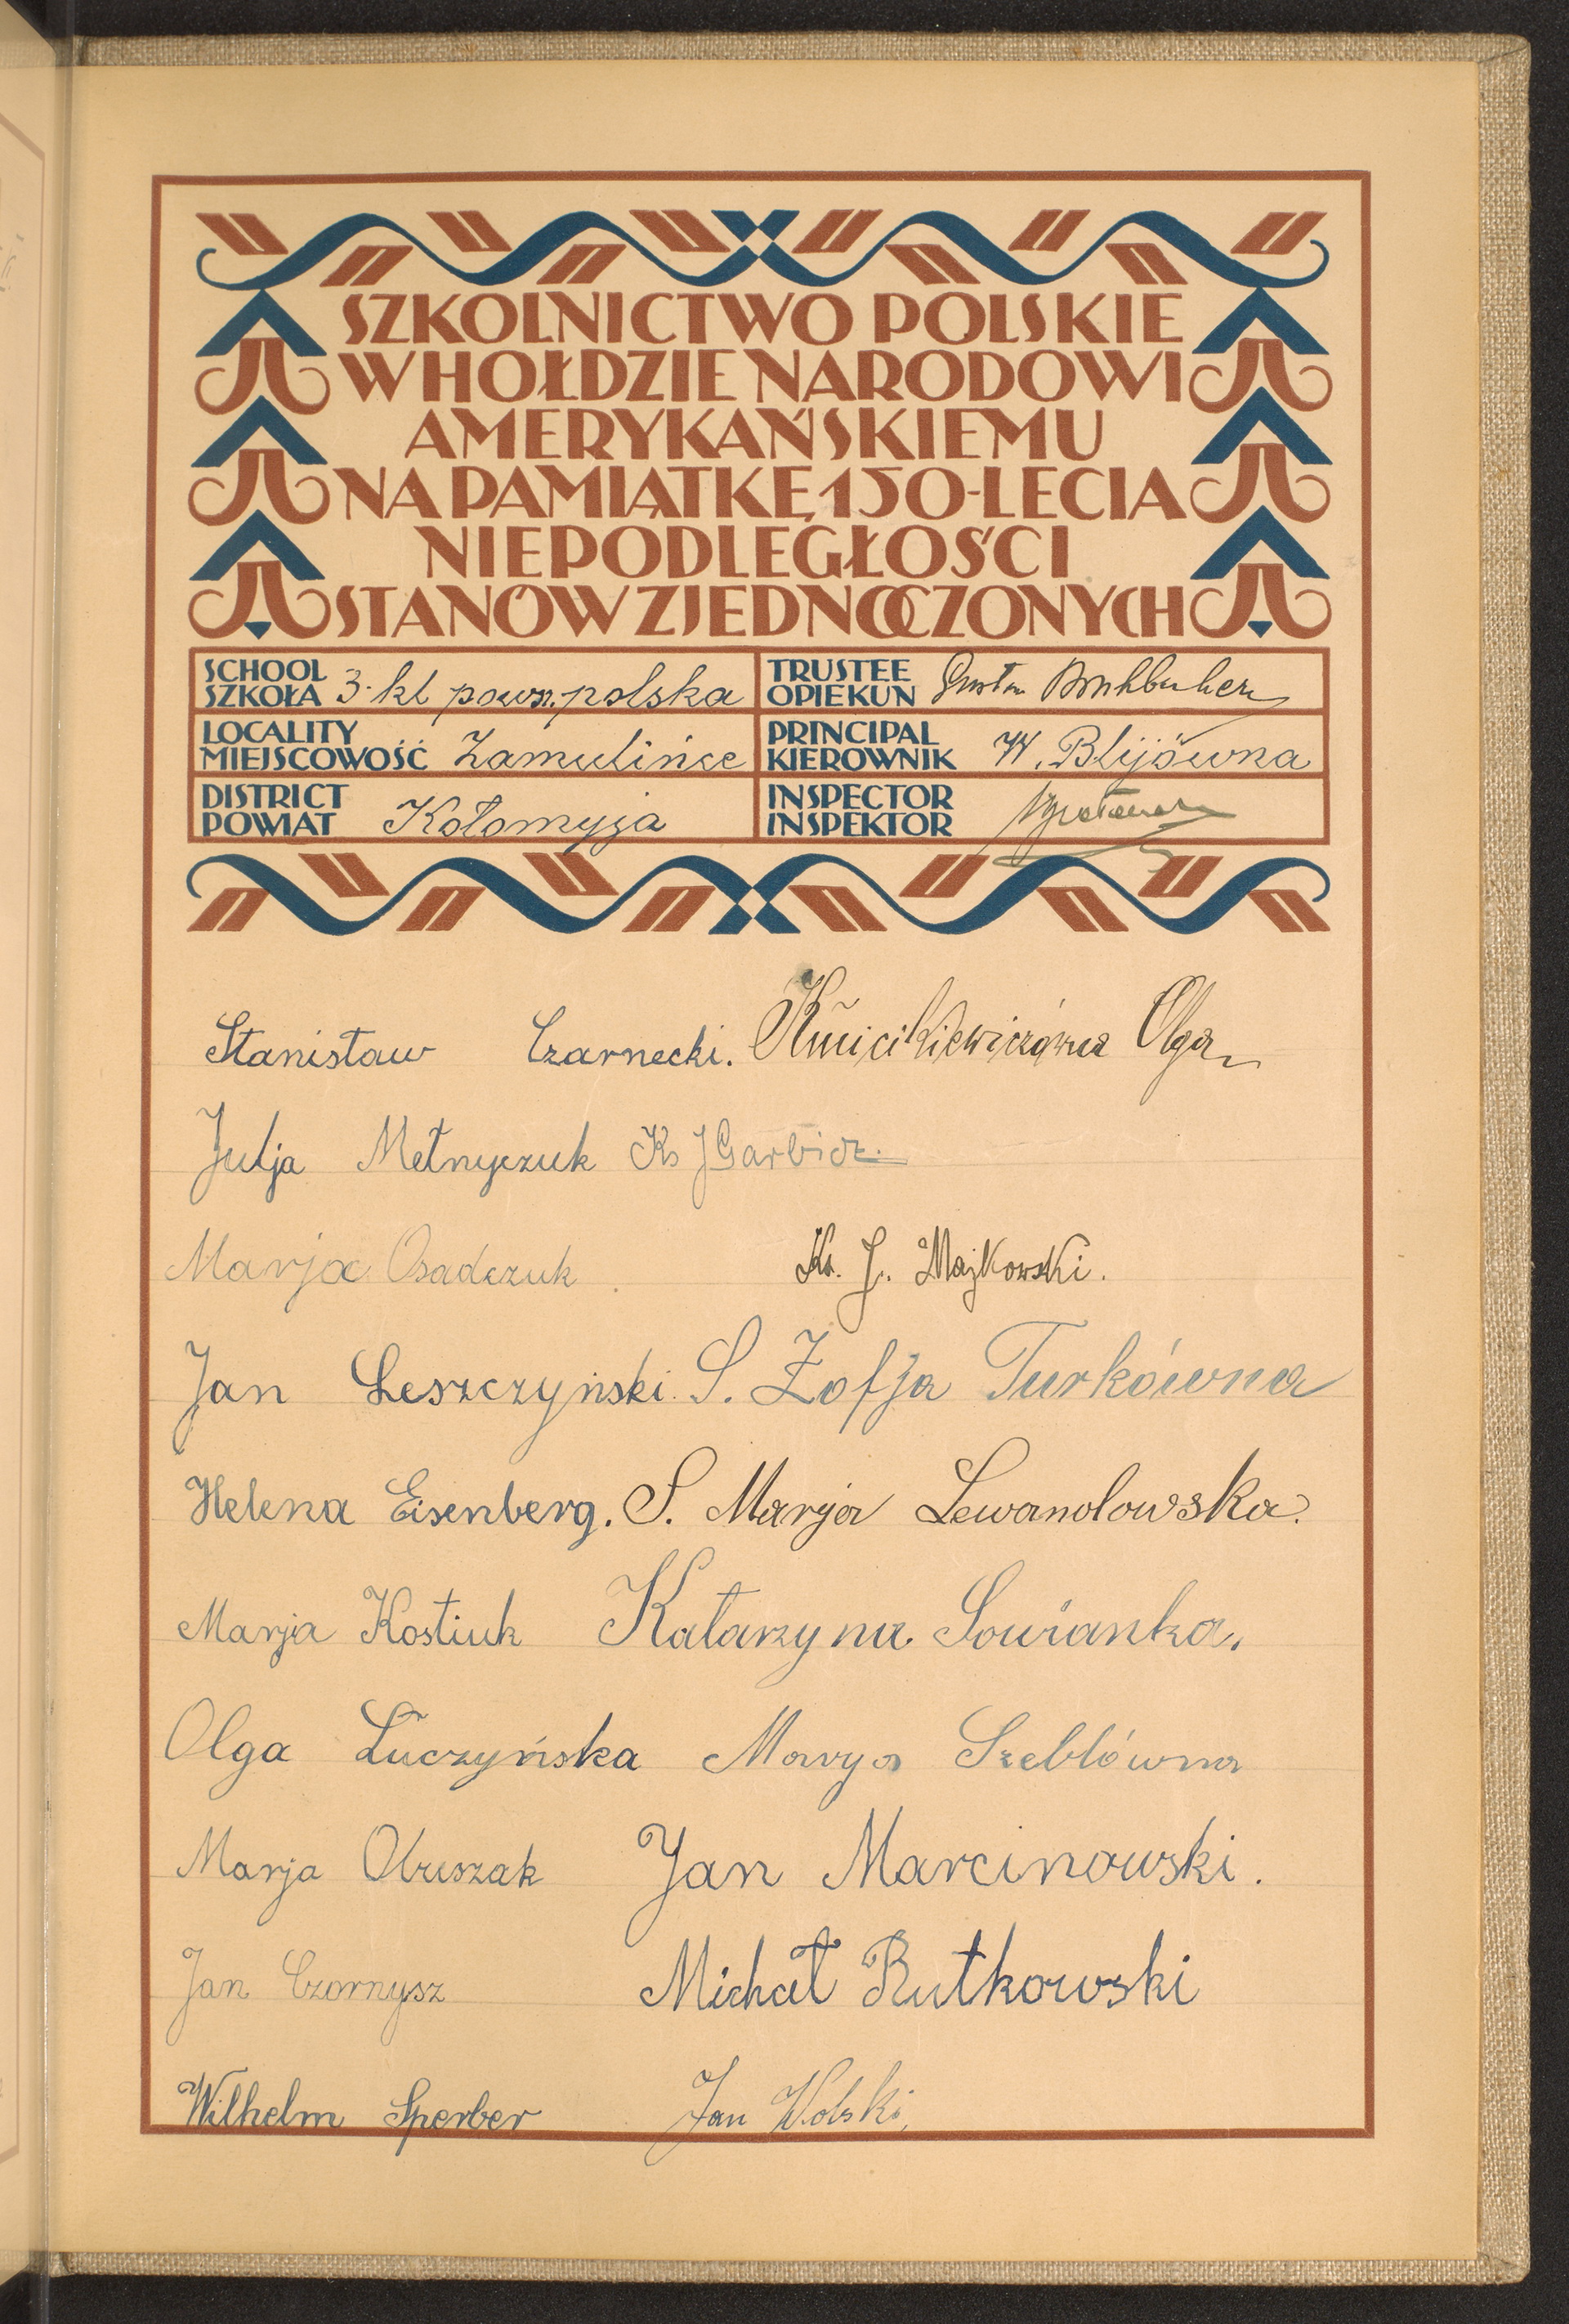 SZKOLNICTWO POLSKIE
W HOŁDZIE NARODOWI
AMERYKAŃSKIEMU
NA PAMIĄTKĘ 150-LECIA
NIEPODLEGŁOŚCI
STANÓW ZJEDNOCZONYCH
SCHOOL
SZKOŁA 3. kl powsz. polska
TRUSTEE
OPIEKUN
LOCALITY
MIEJSCOWOŚĆ Zamulińce
PRINCIPAL
KIEROWNIK W. Blijówna
DISTRICT
POWIAT Kołomyja
INSPECTOR
INSPEKTOR
Stanisław Czarnecki. Kmicikiewiczówna Olga
Julja Mełnyczuk Ks J Garbicz.
Marja Osadczuk Ks. J. Majkowski.
Jan Leszczyński. S. Zofja Turkówna
Helena Eisenberg. S. Marja Lewandowska.
Marja Kostiuk Katarzyna
Olga Łuczyńska Marya Szeblówna
Marja Obuszak Jan Marcinowski.
Jan Czornysz Michał Rutkowski
Wilhelm Sperber Jan Wolski,